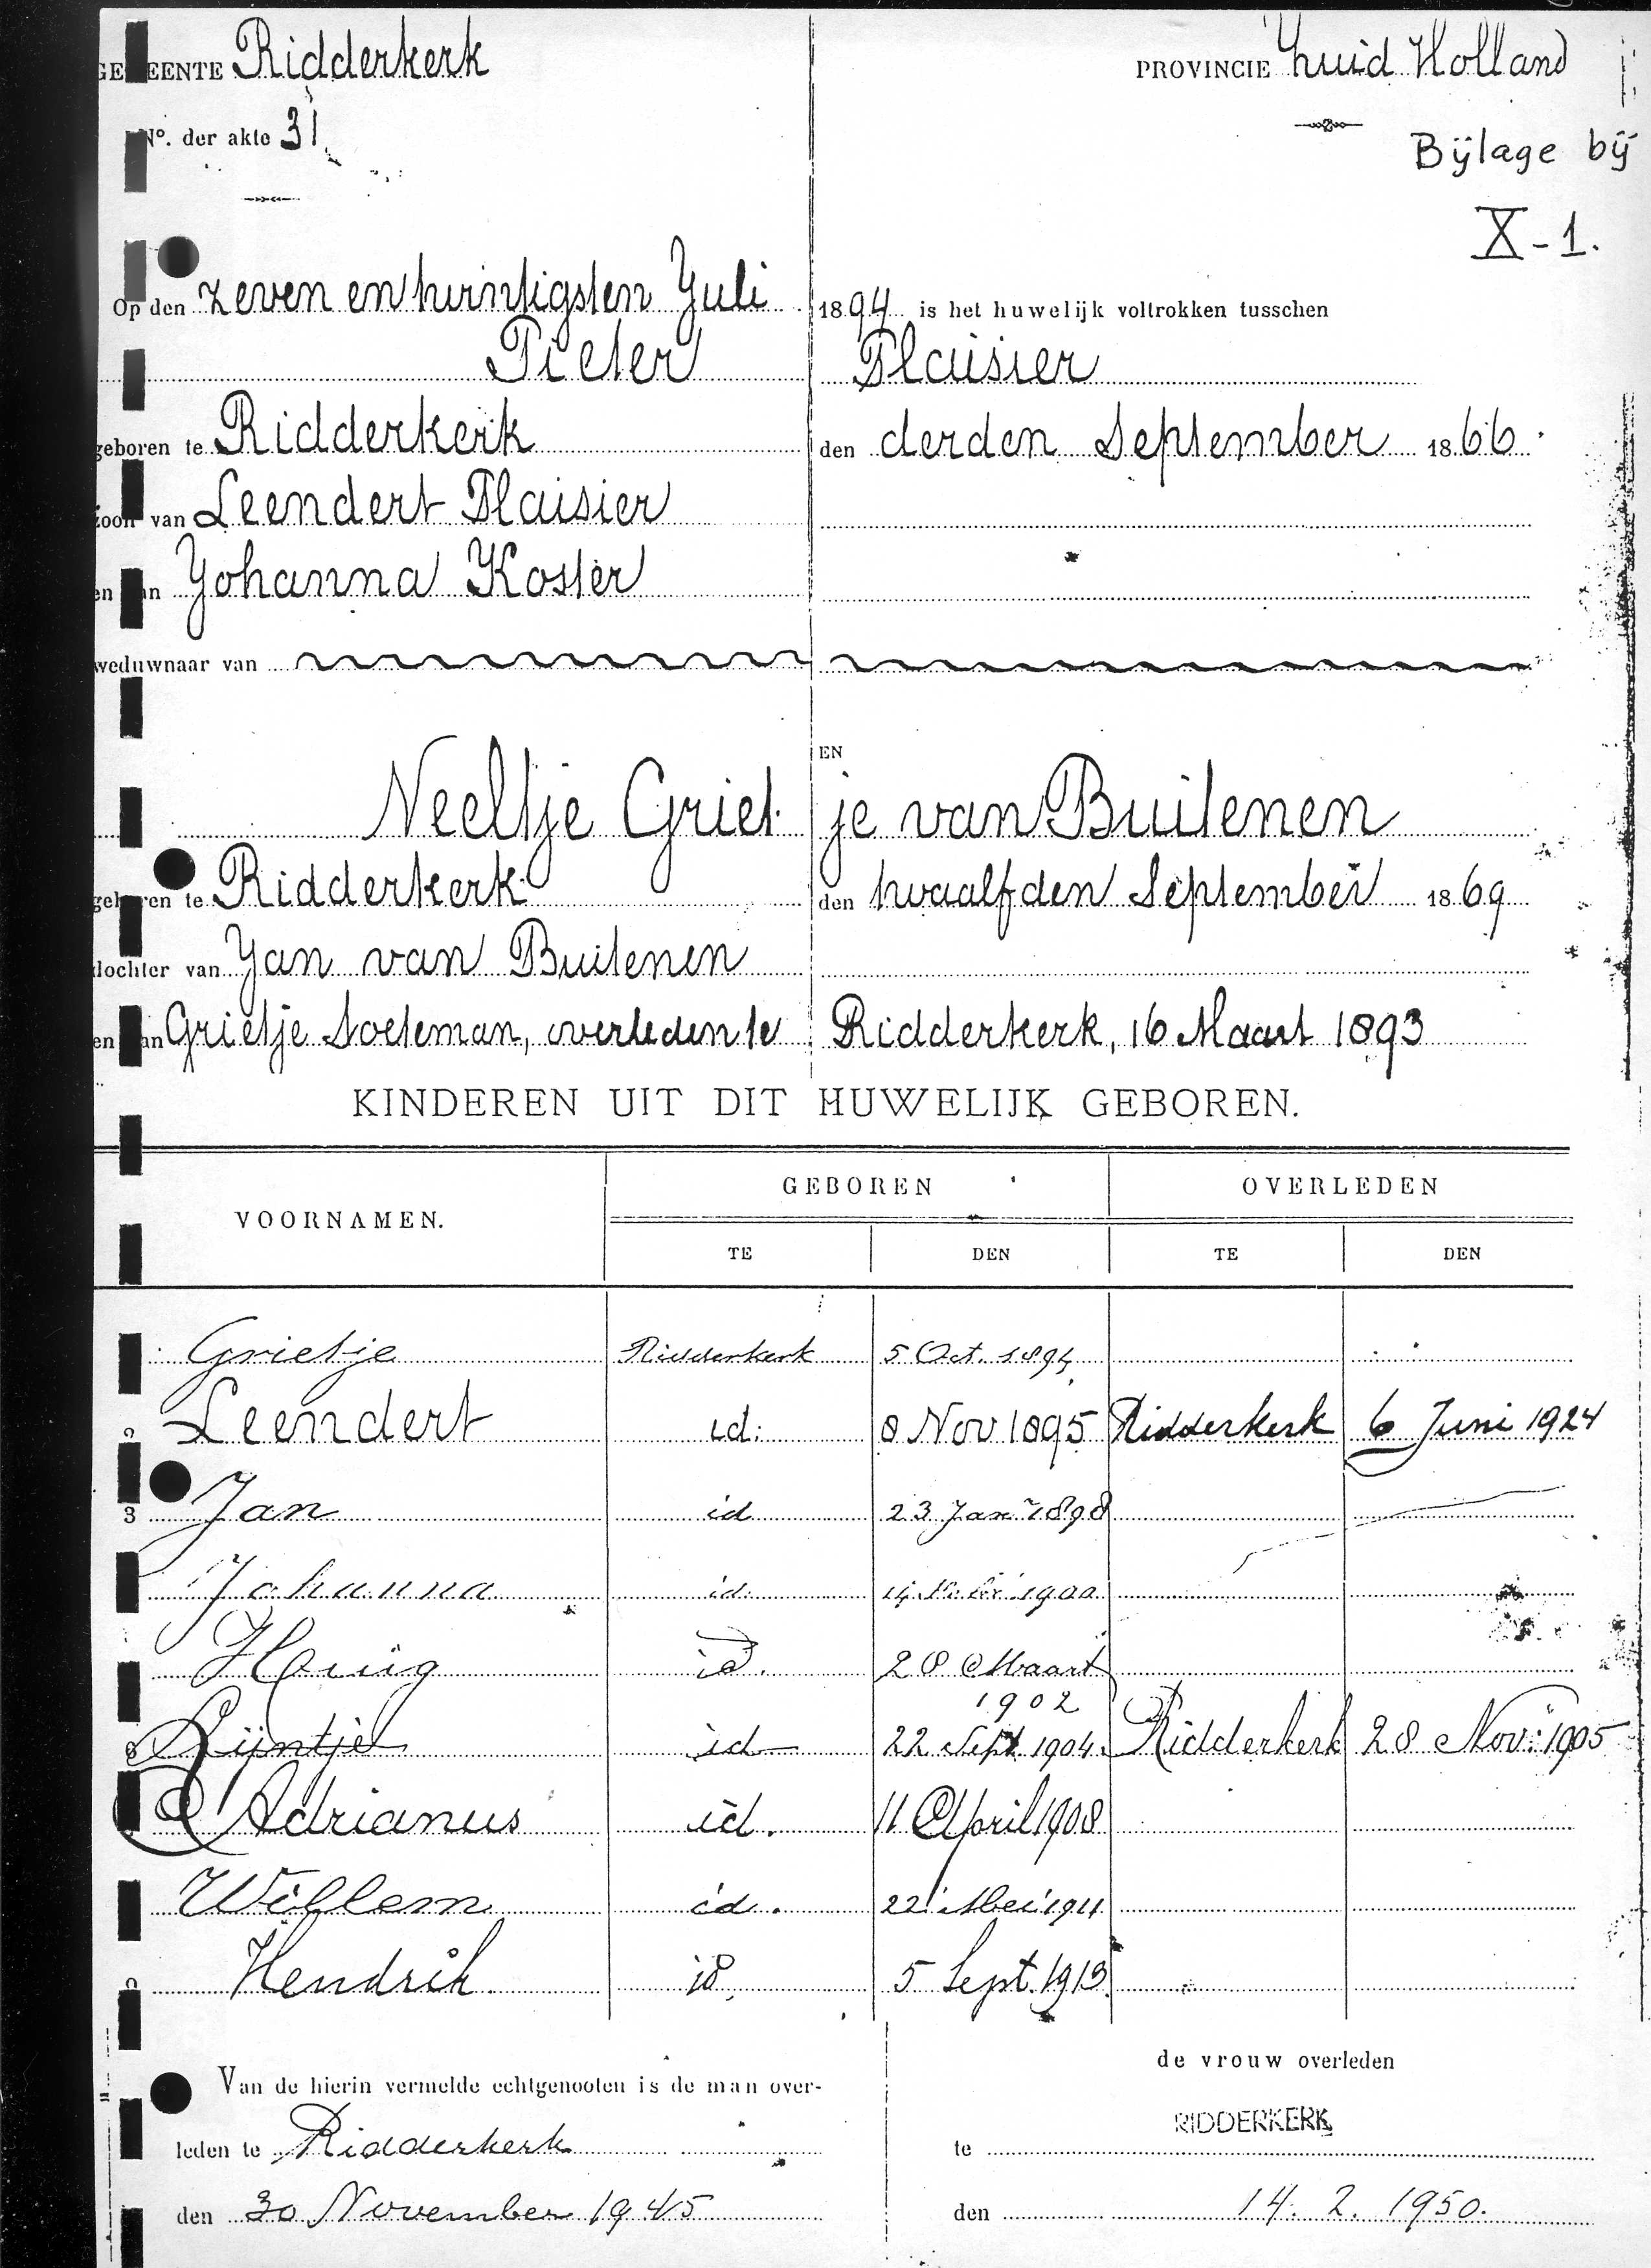 GEMEENTE Ridderkerk
PROVINCIE Zuid Holland
No. der akte 31
Bijlage bij
X-1.
Op den zeven en twintigsten Juli 1894 is het huwelijk voltrokken tusschen
Pieter Plaisier
geboren te Ridderkerk den derden September 1866.
zoon van Leendert Plaisier
en van Johanna Koster
weduwnaar van
EN
Neeltje Grietje van Buitenen
geboren te Ridderkerk den twaalfden September 1869
dochter van Jan van Buitenen
en van Grietje Soeteman, overleden te Ridderkerk, 16 Maart 1893
KINDEREN UIT DIT HUWELIJK GEBOREN.
VOORNAMEN. GEBOREN OVERLEDEN
TE DEN TE DEN
Grietje Ridderkerk 5 Oct. 1894
2 Leendert id. 8 Nov 1895 Ridderkerk 6 Juni 1924
3 Jan id 23 Jan 1898
Johanna id. 14 1900
Huig id. 28 Maart 1902
6 Pijntje id 22 Sept 1904. Ridderkerk 28 Nov: 1905
Adrianus id. 11 April 1908
Willem id. 22 Mei 1911
Hendrik id. 5 Sept. 1913
Van de hierin vermelde echtgenooten is de man over-
leden te Ridderkerk
den 30 November 1945
de vrouw overleden
te RIDDERKERK
den 14. 2. 1950.